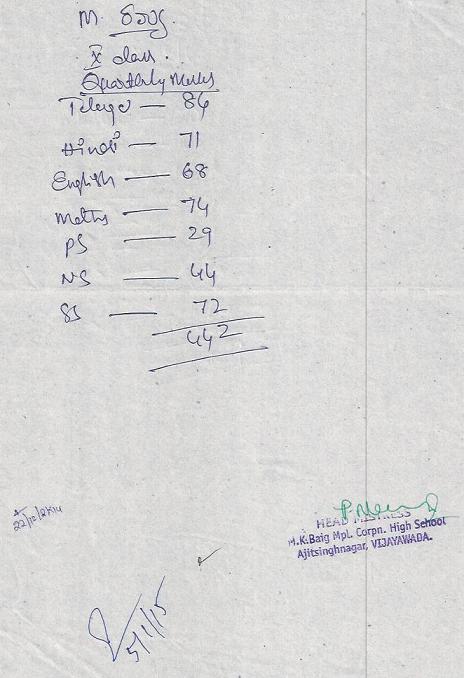 M.
X class.
Quarterly Marks
Telugu — 84
Hindi — 71
English — 68
Maths — 74
PS — 29
NS — 44
SS — 72
442
22/10/2014
HEAD MISTRESS
M.K.Baig Mpl. Corpn. High School
Ajitsinghnagar, VIJAYAWADA.
5/1/15